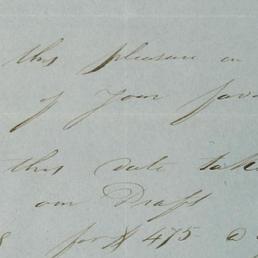 this pleasure in
of your favo
this date take
our Draft
for $ 475 @